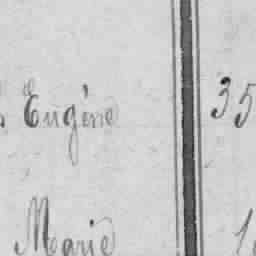 Eugène 35
Marie